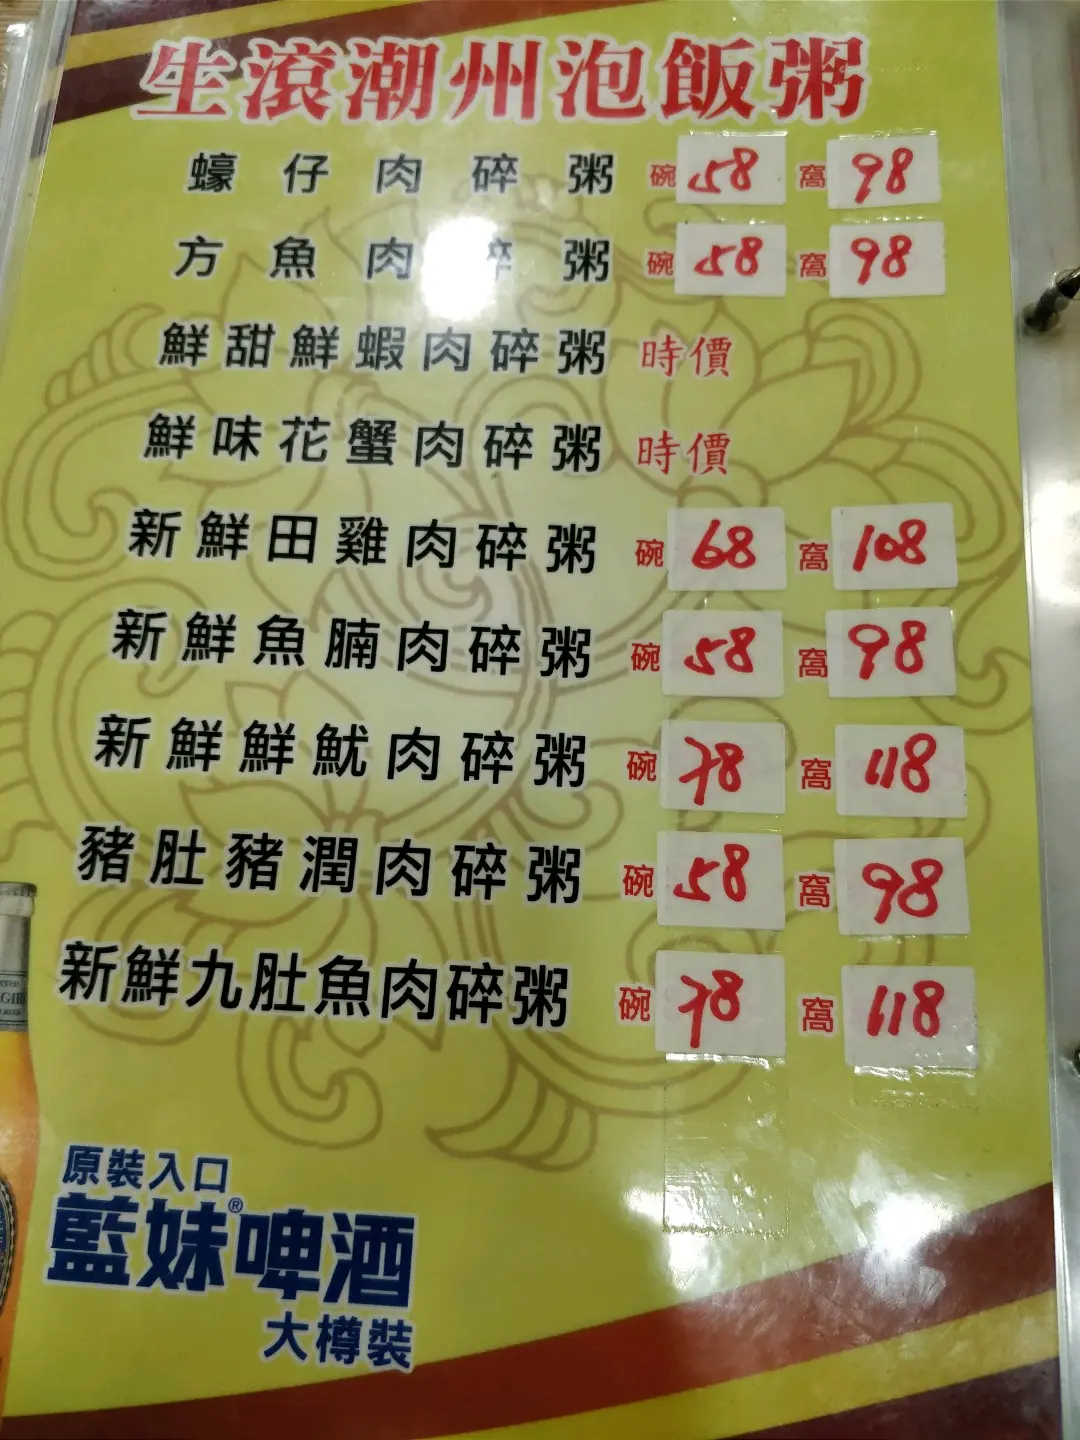 生滾潮州泡飯粥
蠔仔肉碎粥 碗 58 窩 98
方魚肉碎粥 碗 58 窩 98
鮮甜鮮蝦肉碎粥 時價
鮮味花蟹肉碎粥 時價
新鮮田雞肉碎粥 碗 68 窩 108
新鮮魚腩肉碎粥 碗 58 窩 98
新鮮鮮魷肉碎粥 碗 78 窩 118
豬肚豬潤肉碎粥 碗 58 窩 98
新鮮九肚魚肉碎粥 碗 78 窩 118
原裝入口
藍妹®啤酒
大樽裝